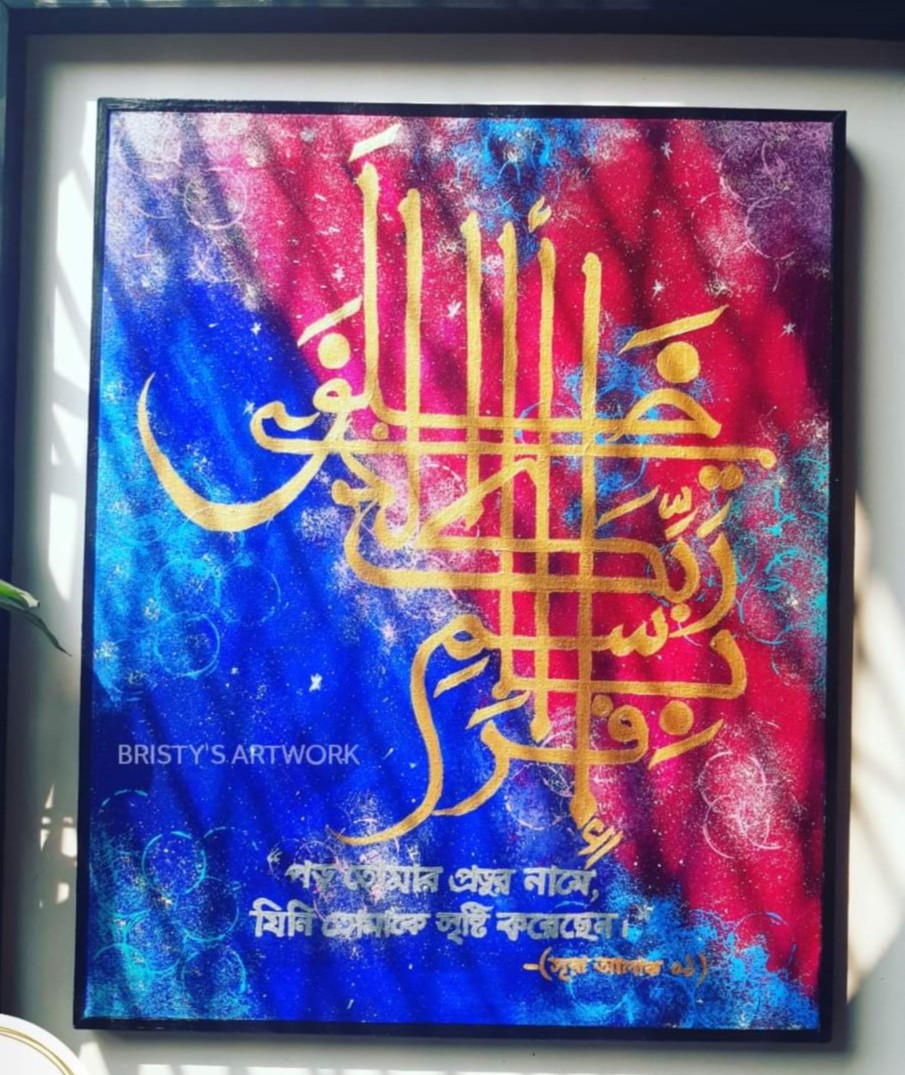 اقْرَأْ بِاسْمِ رَبِّكَ الَّذِي خَلَقَ
BRISTY'S ARTWORK
“পড় তোমার প্রভুর নামে,
যিনি তোমাকে সৃষ্টি করেছেন।”
-(সূরা আলাক ০১)